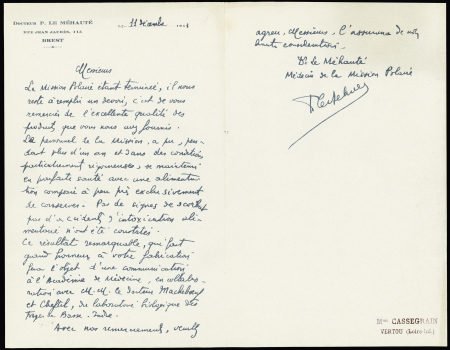 Docteur P. LE MÉHAUTÉ
RUE JEAN JAURÈS, 115
BREST
11 Décembre
Messieurs
La Mission Polaire étant terminée, il nous
reste à remplir un devoir, c'est de vous
remercier de l'excellente qualité des
produits que vous nous avez fournis.
Le personnel de la Mission, a pu, pen-
dant plus d'un an et dans des conditions
particulièrement rigoureuses, se maintenir
en parfaite santé avec une alimenta-
tion composée à peu près exclusivement
de conserves. Pas de signes de scorbut
pas d'accidents d'intoxication ali-
mentaire n'ont été constatés.
Ce résultat remarquable, qui fait
grand honneur à votre fabrication
fera l'objet d'une communication
à l'Académie de Médecine, en collabo-
ration avec M.M. le docteur Macheboeuf
et Cheftel, du laboratoire biologique des
Forges de Basse-Indre.
Avec nos remerciements, veuillez
agréer, Messieurs, l'assurance de ma
haute considération.
Dr Le Méhauté
Médecin de la Mission Polaire
Mon CASSEGRAIN
VERTOU (Loire Inf.)